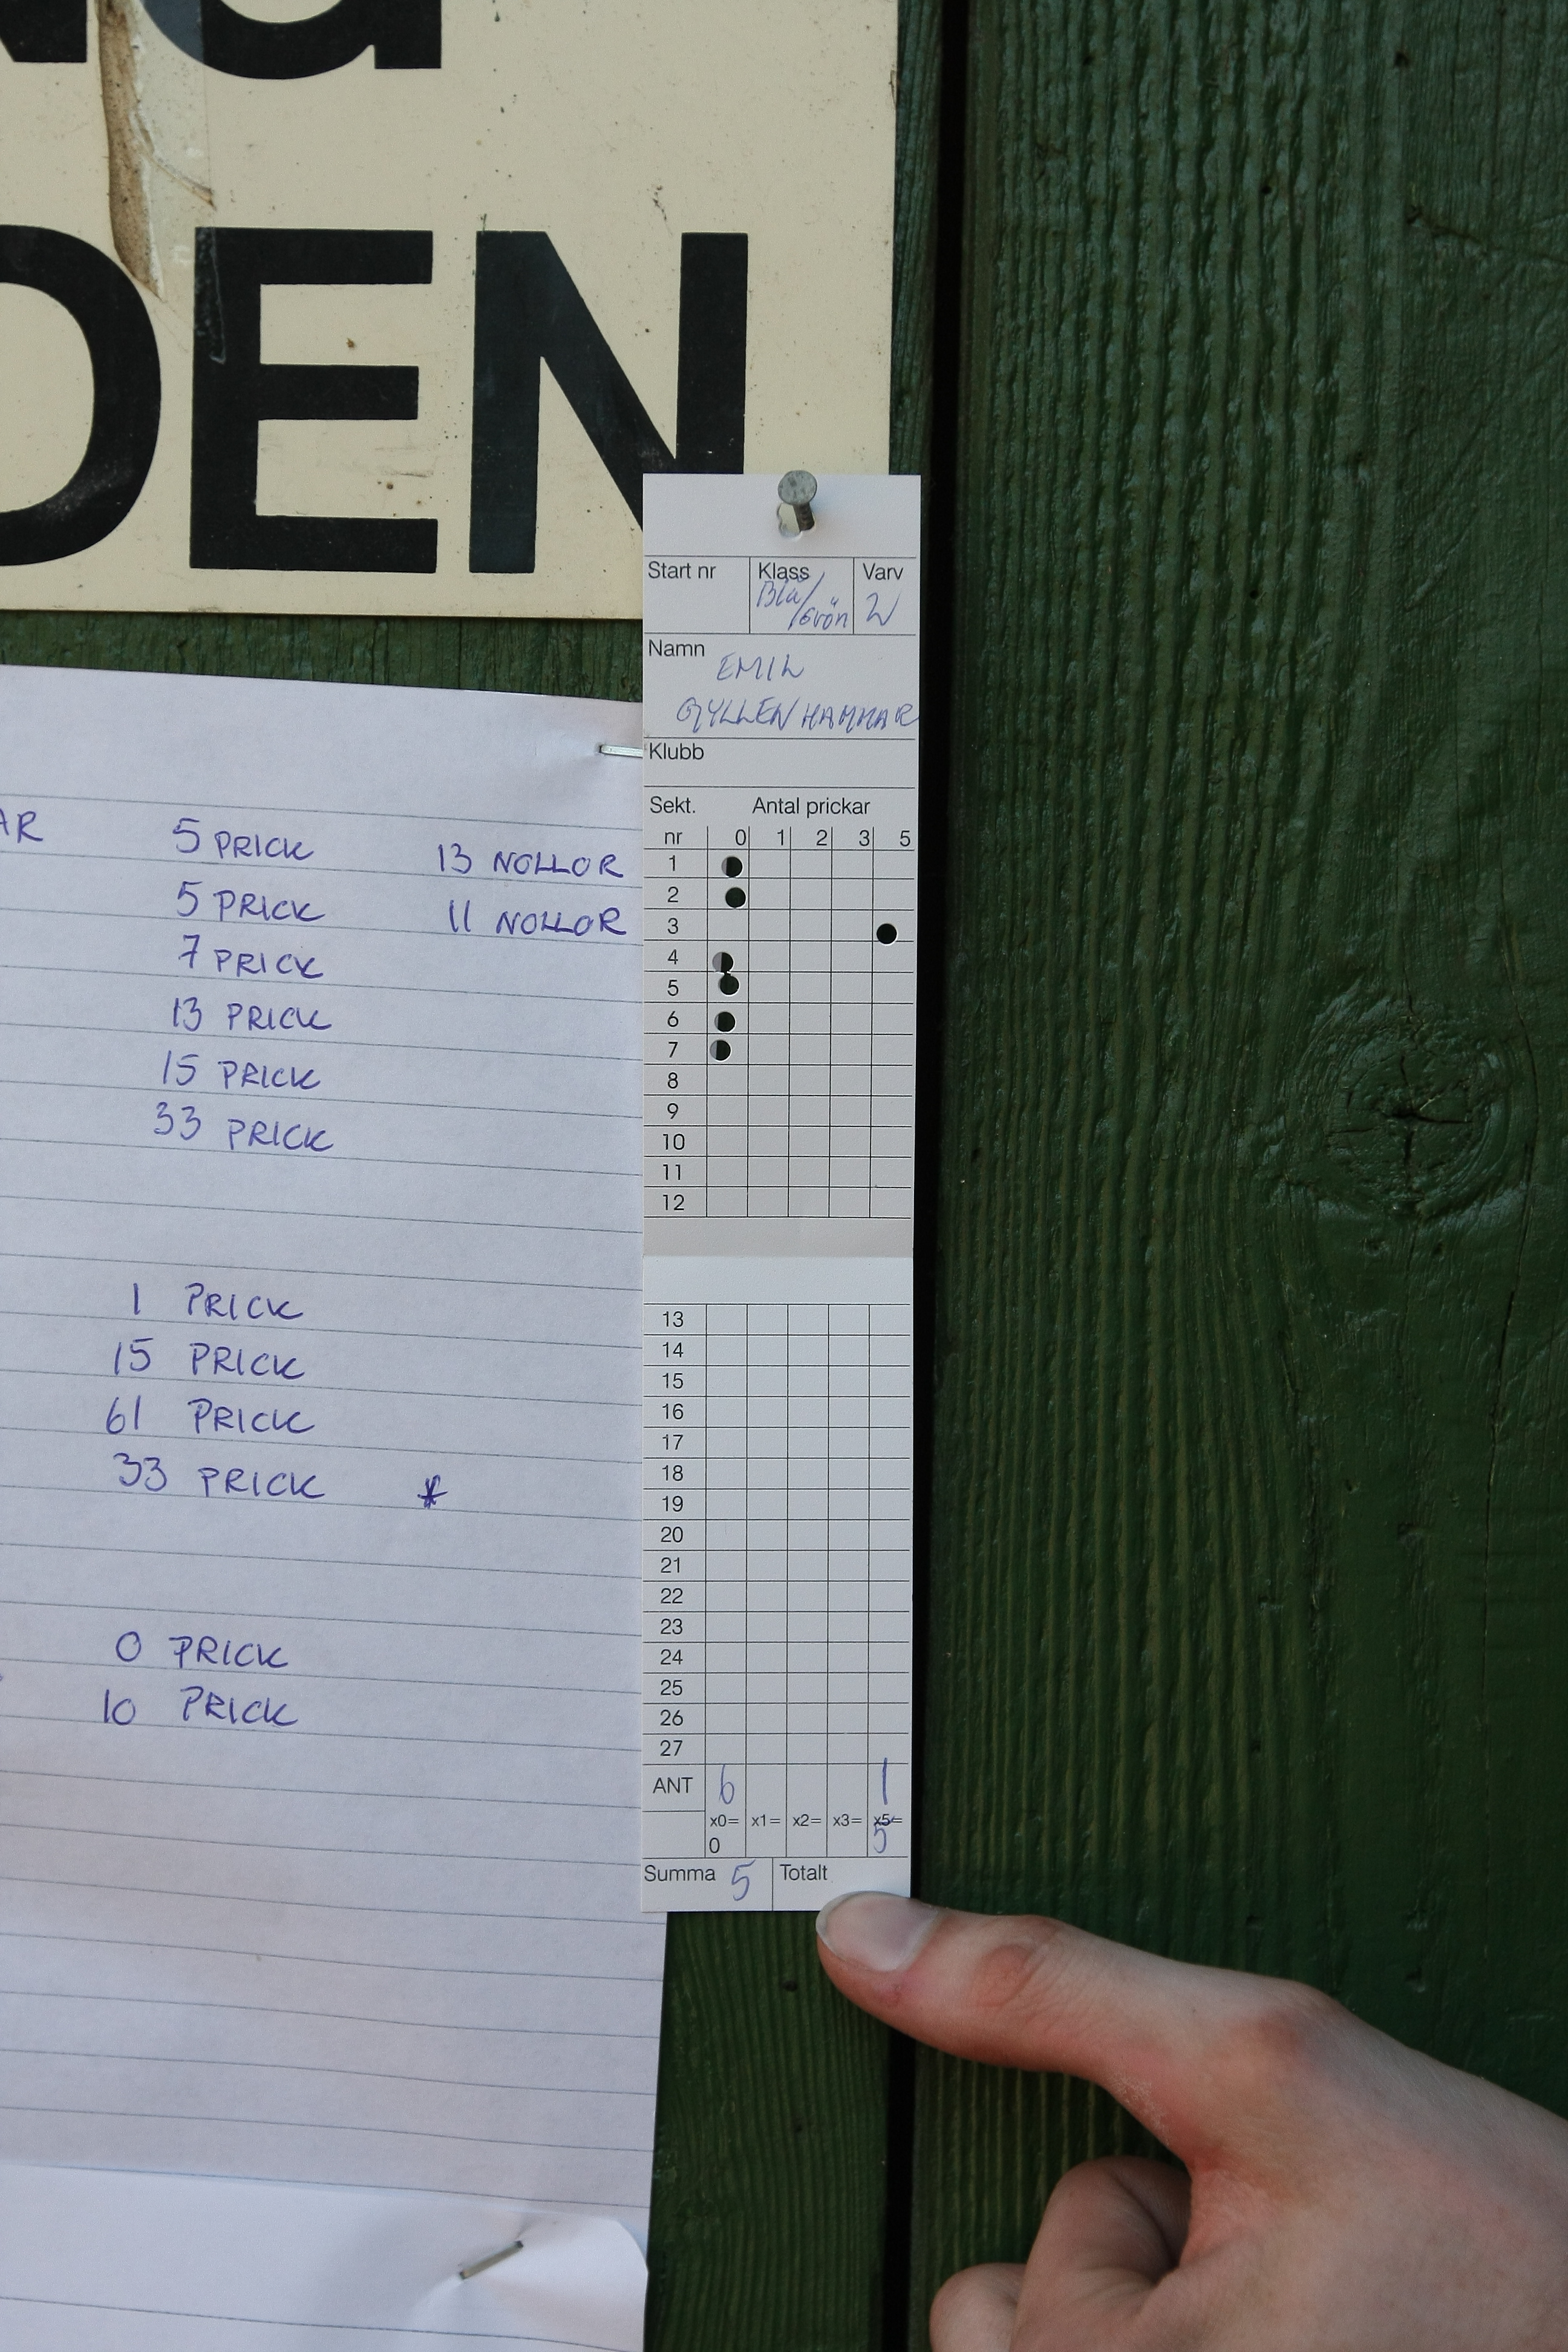 NG
DEN
Start nr Klass Varv
Blå/Grön 2
Namn
EMIL
GYLLENHAMMAR
Klubb
Sekt. Antal prickar
nr 0 1 2 3 5
1
2
3
4
5
6
7
8
9
10
11
12
13
14
15
16
17
18
19
20
21
22
23
24
25
26
27
ANT 6 1
x0= x1= x2= x3= x5=
0 5
Summa 5 Totalt
AR 5 PRICK 13 NOLLOR
5 PRICK 11 NOLLOR
7 PRICK
13 PRICK
15 PRICK
33 PRICK
1 PRICK
15 PRICK
61 PRICK
33 PRICK *
0 PRICK
10 PRICK